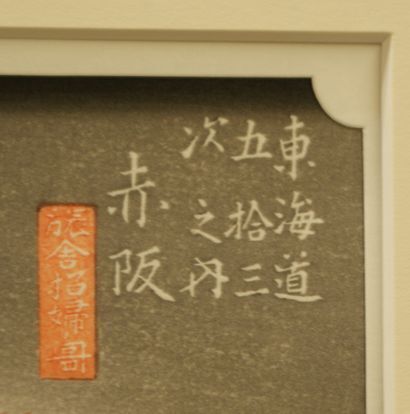 東海道
五拾三
次之内
赤阪
旅舎招婦ノ図